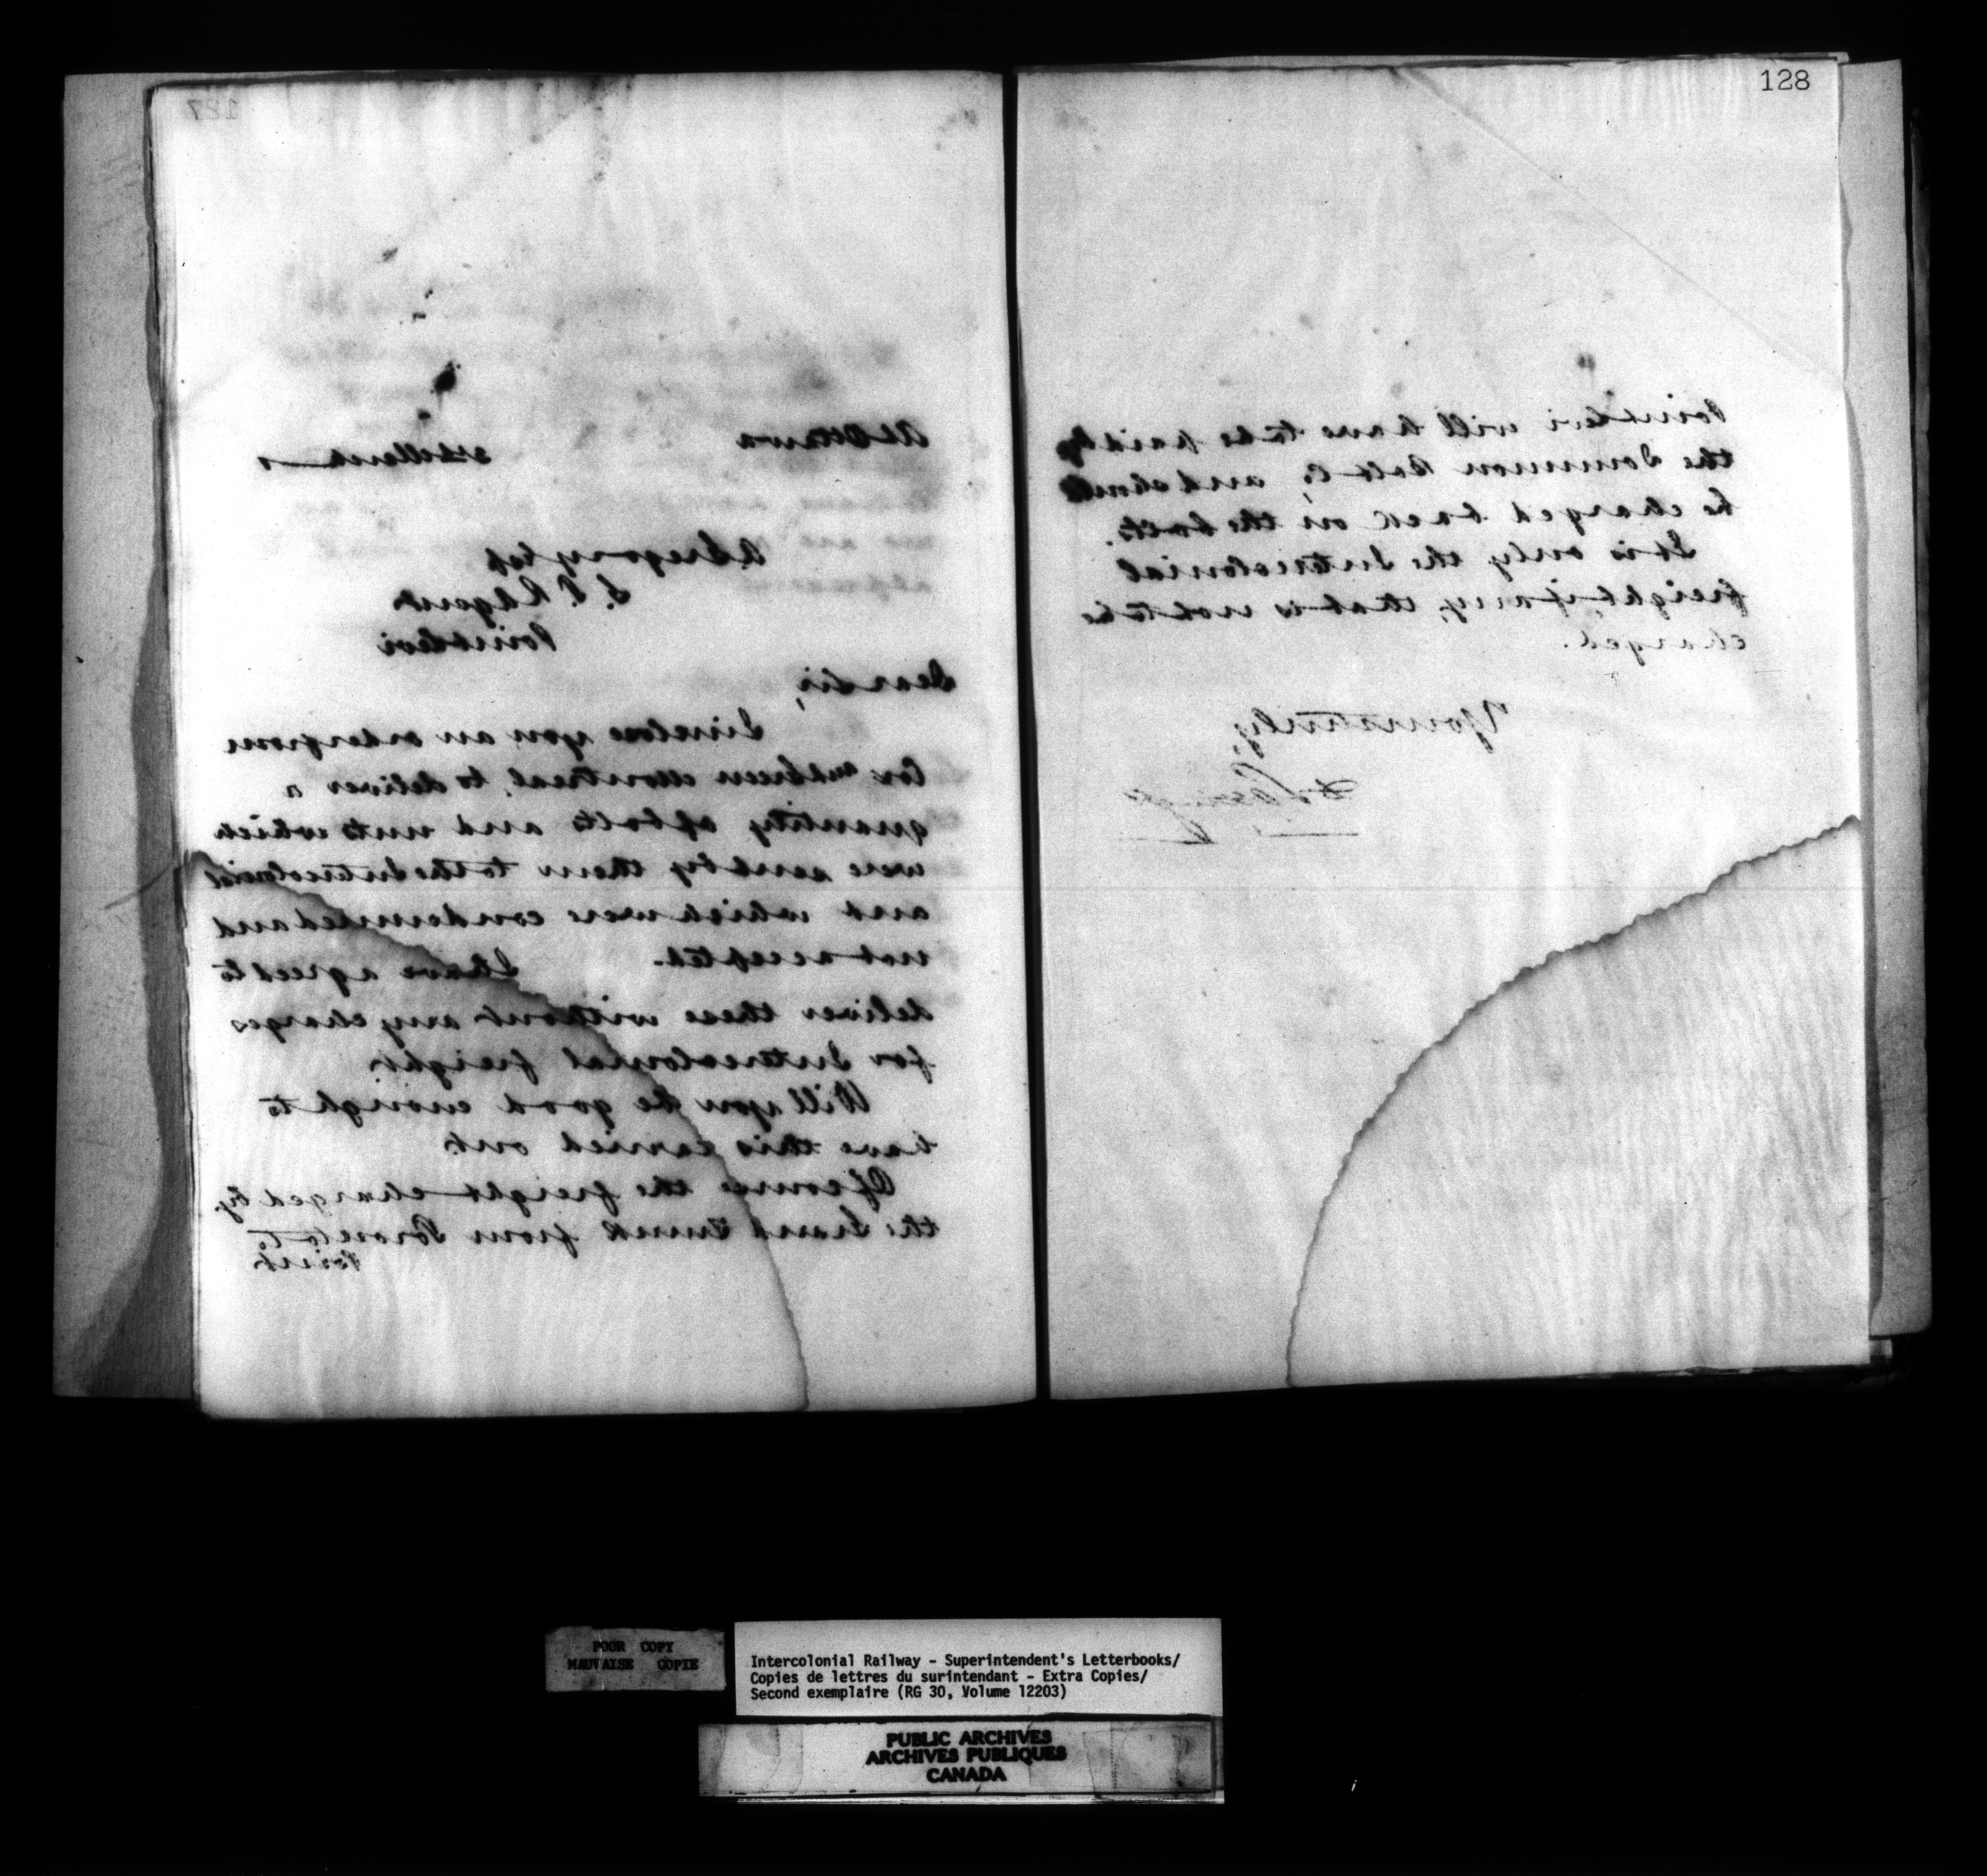 127
At Ottawa
A Gregory Esq
I. C. R Agent
Point Levi
Dear Sir,
I inclose you an order from
Cox and Green Montreal, to deliver a
quantity of bolts and nuts which
were sent by them to the Intercolonial
and which were condemned and
not accepted. I have agreed to
deliver these without any charges
for Intercolonial freight
Will you be good enough to
have this carried out
Of course the freight charged by
the Grand Trunk from Toronto to
Point
128
Point Levi will have to be paid by
the Dominion Bolt Co, and should
be charged back on the bolts.
It is only the Intercolonial
freight, if any, that is not to be
charged.
Yours truly,
POOR COPY
MAUVAISE COPIE
Intercolonial Railway - Superintendent's Letterbooks/
Copies de lettres du surintendant - Extra Copies/
Second exemplaire (RG 30, Volume 12203)
PUBLIC ARCHIVES
ARCHIVES PUBLIQUES
CANADA